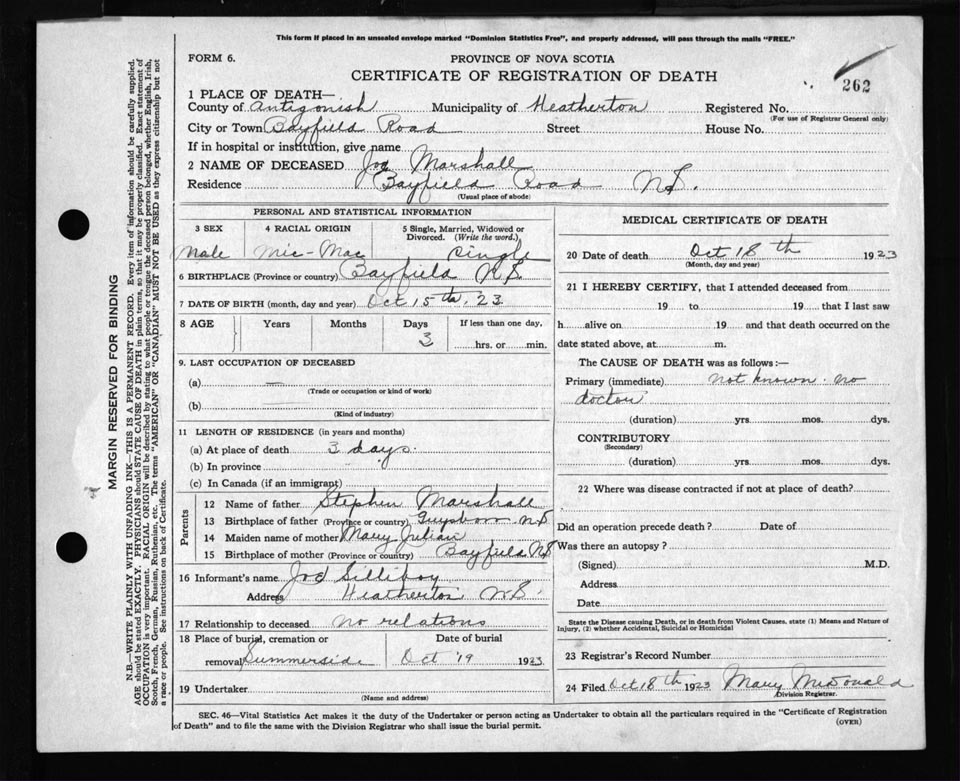 This form if placed in an unsealed envelope marked "Dominion Statistics Free", and properly addressed, will pass through the mails "FREE."
FORM 6.
PROVINCE OF NOVA SCOTIA
262
CERTIFICATE OF REGISTRATION OF DEATH
1 PLACE OF DEATH—
County of Antigonish Municipality of Heatherton Registered No.
(For use of Registrar General only)
City or Town Bayfield Road Street House No.
If in hospital or institution, give name
2 NAME OF DECEASED Joe Marshall
Residence Bayfield Road N.S.
(Usual place of abode)
PERSONAL AND STATISTICAL INFORMATION
3 SEX 4 RACIAL ORIGIN 5 Single, Married, Widowed or Divorced. (Write the word.)
Male Mic-Mac Single
6 BIRTHPLACE (Province or country) Bayfield N.S
7 DATE OF BIRTH (month, day and year) Oct 15th, 23
8 AGE Years Months Days If less than one day,
3 hrs. or min.
9. LAST OCCUPATION OF DECEASED
(a) —
(Trade or occupation or kind of work)
(b)
(Kind of industry)
11 LENGTH OF RESIDENCE (in years and months)
(a) At place of death 3 days.
(b) In province
(c) In Canada (if an immigrant)
Parents
12 Name of father Stephen Marshall
13 Birthplace of father (Province or country) Guysboro N.S
14 Maiden name of mother Mary Julian
15 Birthplace of mother (Province or country) Bayfield N.S
16 Informant's name Joe Silliboy
Address Heatherton N.S.
17 Relationship to deceased no relations
18 Place of burial, cremation or Date of burial
removal Summerside Oct 19 1923
19 Undertaker
(Name and address)
MEDICAL CERTIFICATE OF DEATH
20 Date of death Oct 18th 1923
(Month, day and year)
21 I HEREBY CERTIFY, that I attended deceased from
19 to 19 that I last saw
h alive on 19 and that death occurred on the
date stated above, at m.
The CAUSE OF DEATH was as follows :—
Primary (immediate) not known. no
doctor
(duration) yrs. mos. dys.
CONTRIBUTORY
(Secondary)
(duration) yrs. mos. dys.
22 Where was disease contracted if not at place of death?
Did an operation precede death ? Date of
Was there an autopsy ?
(Signed) M.D.
Address
Date
State the Disease causing Death, or in death from Violent Causes, state (1) Means and Nature of
Injury, (2) whether Accidental, Suicidal or Homicidal
23 Registrar's Record Number
24 Filed Oct 18th 1923 Mary McDonald
Division Registrar.
SEC. 46—Vital Statistics Act makes it the duty of the Undertaker or person acting as Undertaker to obtain all the particulars required in the "Certificate of Registration
of Death" and to file the same with the Division Registrar who shall issue the burial permit. (OVER)
MARGIN RESERVED FOR BINDING
N.B.—WRITE PLAINLY WITH UNFADING INK—THIS IS A PERMANENT RECORD. Every item of information should be carefully supplied.
AGE should be stated EXACTLY. PHYSICIANS should STATE CAUSE OF DEATH in plain terms, so that it may be properly classified. Exact statement of
OCCUPATION is very important. RACIAL ORIGIN will be described by stating to what people or tongue the deceased person belonged, whether English, Irish,
Scotch, French, German, Russian, Ruthenian, etc. The terms "AMERICAN" OR "CANADIAN" MUST NOT BE USED as they express citizenship but not
a race or people. See instructions on back of Certificate.